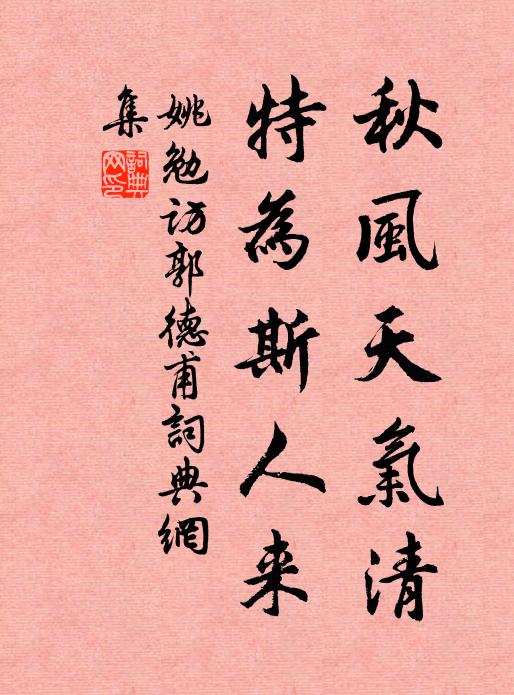 秋風天氣清
特為斯人来
姚勉訪郭德甫詞典網
集
詞典
网印